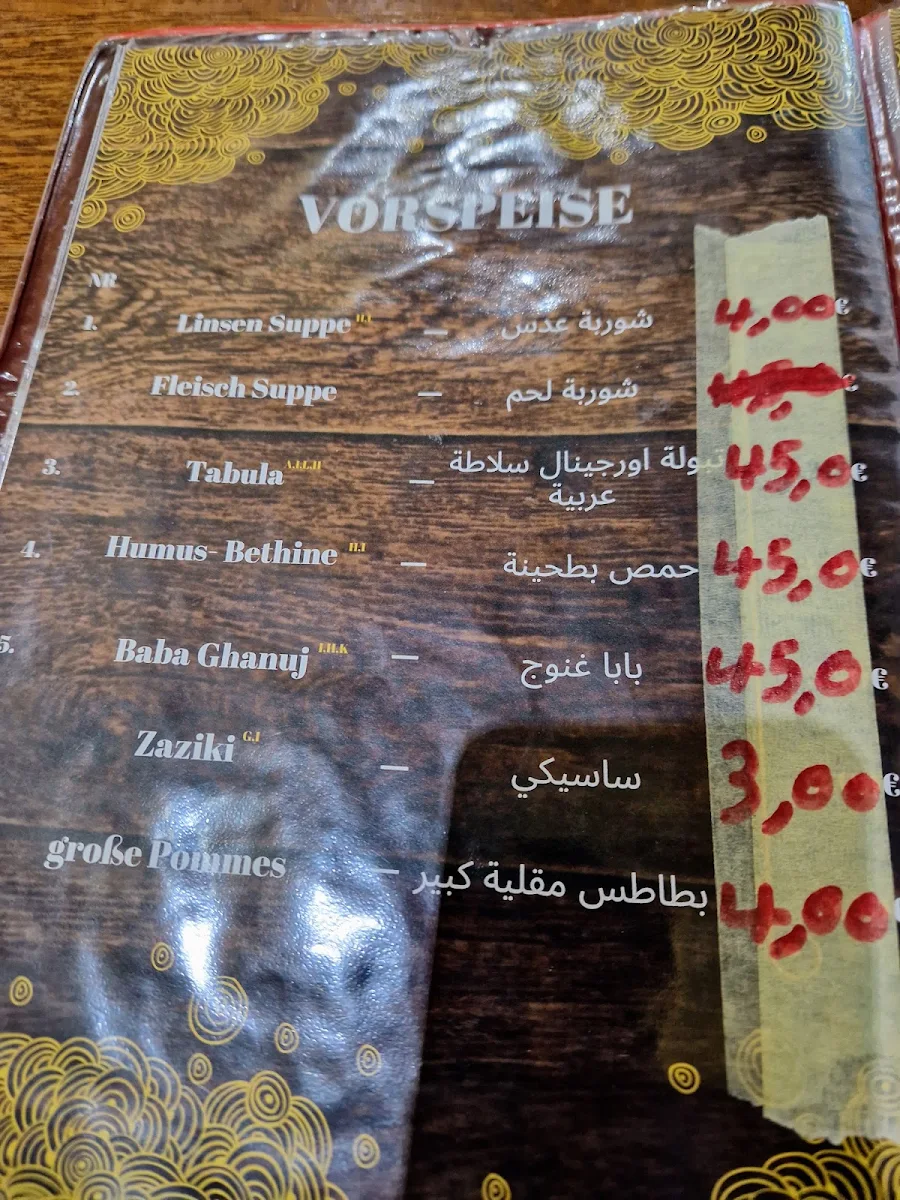 VORSPEISE
NR
1. Linsen Suppe H.I — شوربة عدس 4,00€
2. Fleisch Suppe — شوربة لحم €
3. Tabula A.I.L.H — تبولة اورجينال سلاطة 45,0€
عربية
4. Humus- Bethine H.I — حمص بطحينة 45,0€
5. Baba Ghanuj I.H.K — بابا غنوج 45,0€
Zaziki G.I — ساسيكي 3,00€
große Pommes — بطاطس مقلية كبير 4,00